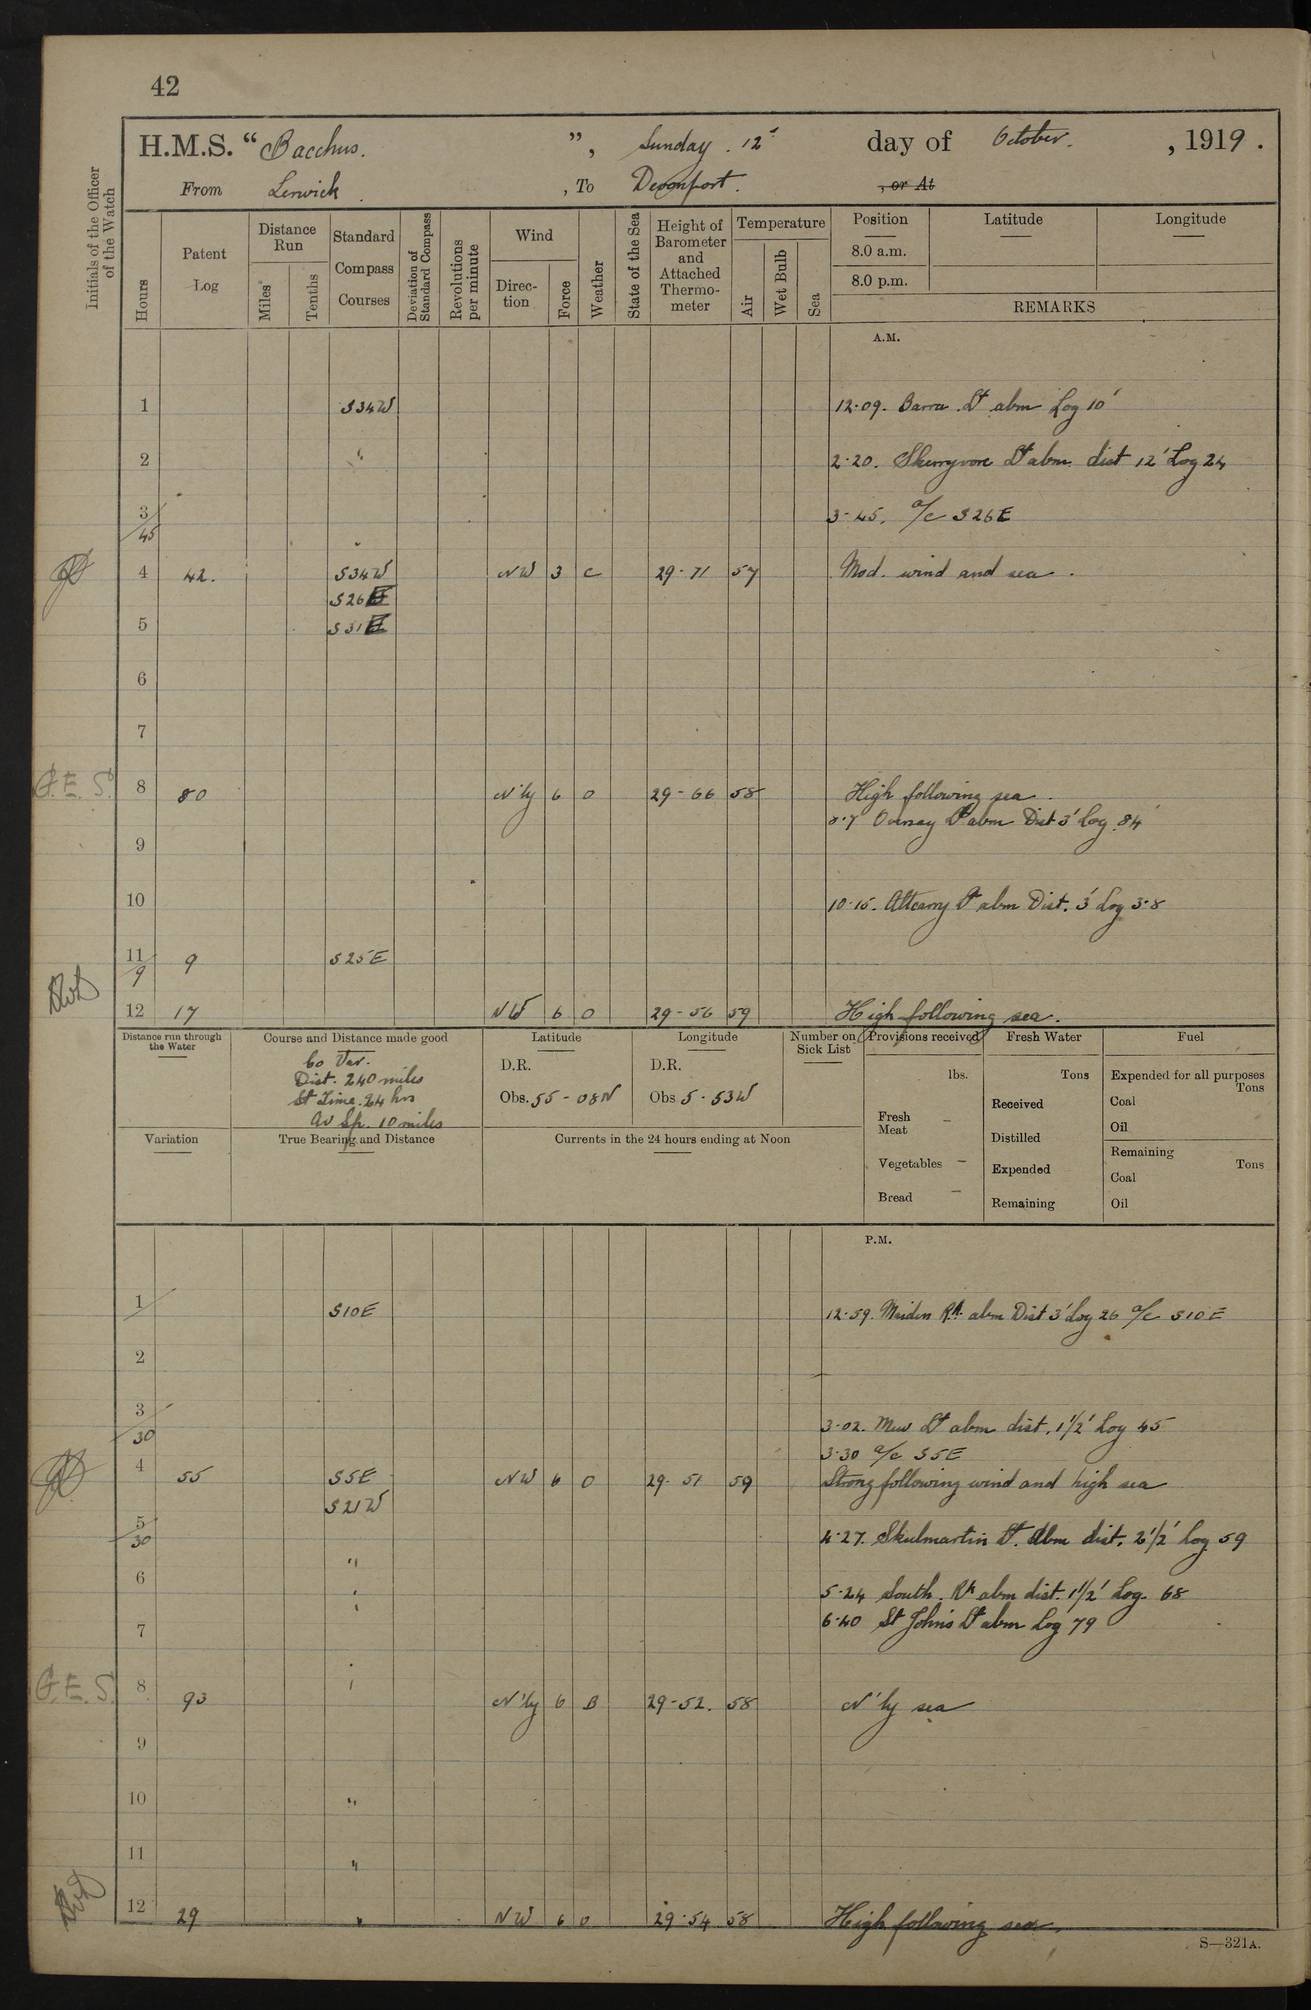 42
H.M.S. “Bacchus.”, Sunday. 12th day of October. , 1919.
From Lerwick. , To Devonport. , or At
Initials of the Officer of the Watch
Hours
Patent Log
Distance Run
Miles
Tenths
Standard Compass Courses
Deviation of Standard Compass
Revolutions per minute
Wind
Direction
Force
Weather
State of the Sea
Height of Barometer and Attached Thermometer
Temperature
Air
Wet Bulb
Sea
Position Latitude Longitude
8.0 a.m.
8.0 p.m.
REMARKS
A.M.
1 S34W 12·09. Barra Lt abm Log 10'
2 " 2·20. Skerryvore Lt abm dist 12' Log 24
3/45 3·45. a/c S26E
4 42. S34W NW 3 C 29·71 57 Mod. wind and sea.
S26E
5 S31E
6
7
G.E.S. 8 80 N'ly 6 O 29-66 58 High following sea.
8·7 Oversay Lt abm Dist 3' Log 84
9
10 10·15. Altcarry Lt abm Dist. 3' Log 3·8
11/9 9 S25E
12 17 NW 6 O 29-56 59 High following sea.
Distance run through the Water
Course and Distance made good
Co Var.
Dist. 240 miles
St Time. 24 hrs
Av Sp. 10 miles
Latitude
D.R.
Obs. 55-08N
Longitude
D.R.
Obs 5·53W
Number on Sick List
Provisions received
lbs.
Fresh Meat –
Vegetables –
Bread –
Fresh Water
Tons
Received
Distilled
Expended
Remaining
Fuel
Expended for all purposes
Tons
Coal
Oil
Remaining
Tons
Coal
Oil
Variation
True Bearing and Distance
Currents in the 24 hours ending at Noon
P.M.
1 S10E 12·59. Maiden Rk. abm Dist 3' Log 26 a/c S10E
2
3/30 3·02. Mew Lt abm dist. 1½' Log 45
3·30 a/c S5E
4 55 S5E NW 6 O 29·51 59 Strong following wind and high sea
S21W
5/30 4·27. Skulmartin Lt. abm dist. 2½' Log 59
"
6 " 5·24 South. Rk abm dist. 1½' Log. 68
" 6·40 St John's Lt abm Log 79
7
G.E.S. 8 93 " N'ly 6 B 29-52. 58 N'ly sea
9
10 "
11 "
12 29 " NW 6 O 29·54 58 High following sea.
S—321A.